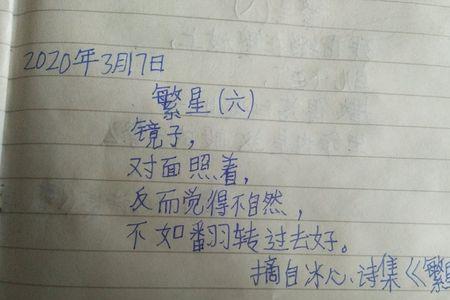 2020年3月17日
繁星(六)
镜子,
对面照着,
反而觉得不自然,
不如翻转过去好。
摘自冰心.诗集《繁